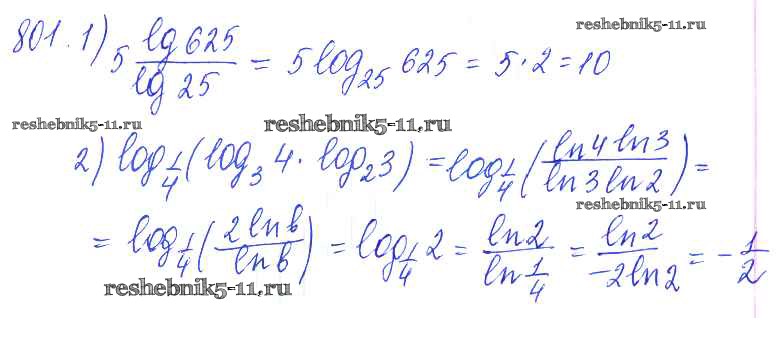 reshebnik5-11.ru
801. 1) 5 lg 625 / lg 25 = 5 log₂₅ 625 = 5 · 2 = 10
reshebnik5-11.ru reshebnik5-11.ru
2) log_{1/4} (log₃ 4 · log₂ 3) = log_{1/4} (ln 4 ln 3 / ln 3 ln 2) =
reshebnik5-11.ru
= log_{1/4} (2 ln b / ln b) = log_{1/4} 2 = ln 2 / ln 1/4 = ln 2 / -2 ln 2 = - 1/2
reshebnik5-11.ru